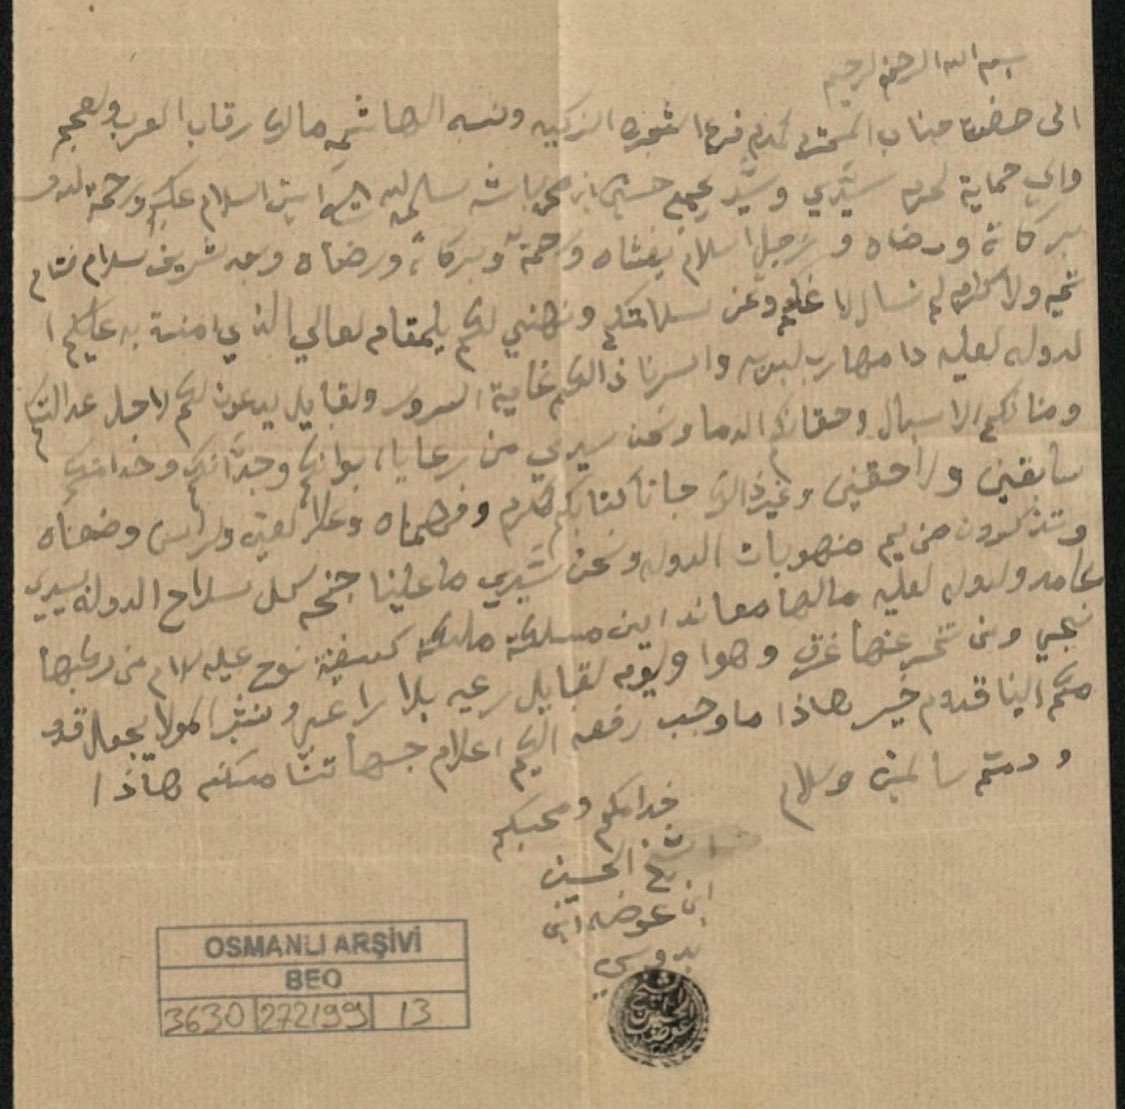 بسم الله الرحمن الرحيم
الى حضرة جناب المحترم المكرم فرع الشجره الزكيه ونسبه الهاشميه مالك رقاب العرب ولعجم
والي حماية لحرم سيدي وسيد لجميع حسين باشه سلمه الله السلام عليكم ورحمة الله و
بركاته ورضاه وجل اسلام يغشاه ورحمة وبركاته ورضاه وبعد شريف سلام نتام
ولاكرام لم نسال الا عليكم وعن سلامتكم ونهنيكم بلمقام لعالي الذي امنة به عليكم ا
لدوله لعليه والسرنا ذالك غاية السرور ولقبايل يدعون لكم لاجل عدالتكم
ومنا لاسبال وحقانكم الدما ونحن سيدي من رعايا ابوانكم وجدانكم وخدامكم
سابقين ولاحقين وغير ذالك جانا كتابكم لكرم وفهمناه وعلا لعين ولراس وضعناه
وتذكرون من يم منهوبات الدوله ونحن سيدي ما علينا جنحه كل سلاح الدوله بيدي
غامد ولدوله لعليه مالها معاند اين مسلكة ملكة كسفينة نوح عليه سلام من ركبها
نجي ومن تخر عنها غرق وهوا وليوم لقبايل رعيه بلا راعي ونشرا مولا يجعل قدو
مكم الينا قدوم خير هاذا ما وجب رفعه اليكم اعلام جهاتنا مسكنه هاذا
ودمتم سالمين وسلام
خدامكم ومحبكم
شيخ الحسين
ابن عوضه ابن
OSMANLI ARŞİVİ
BEO
3630 272199 13